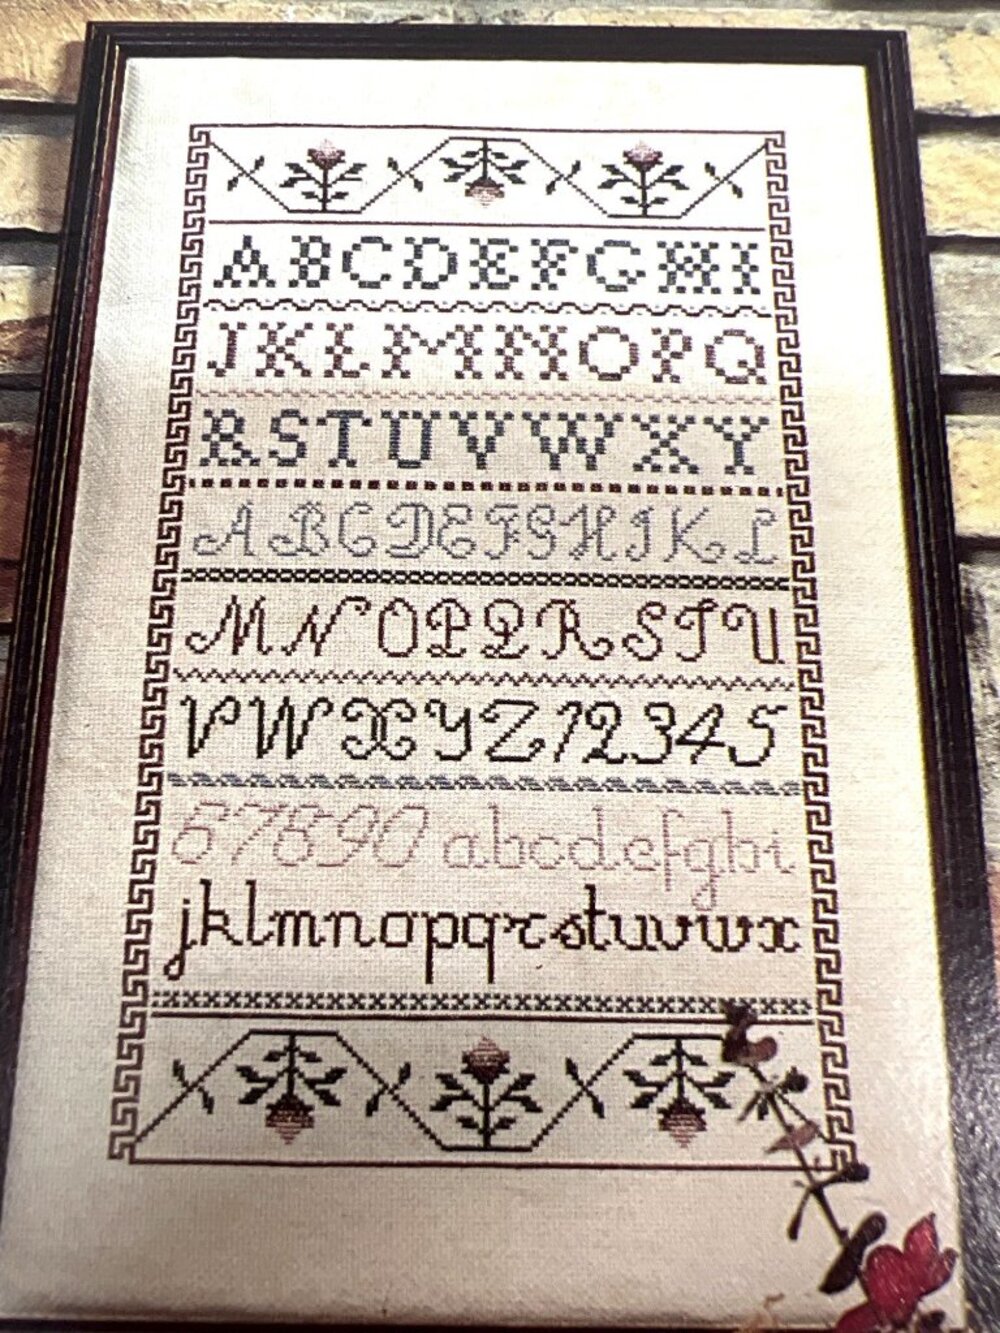 ABCDEFGHI
JKLMNOPQ
RSTUVWXY
ABCDEFGHIKL
MNOPQRSTU
VWXYZ12345
67890 abcdefghi
jklmnopqrstuvwx